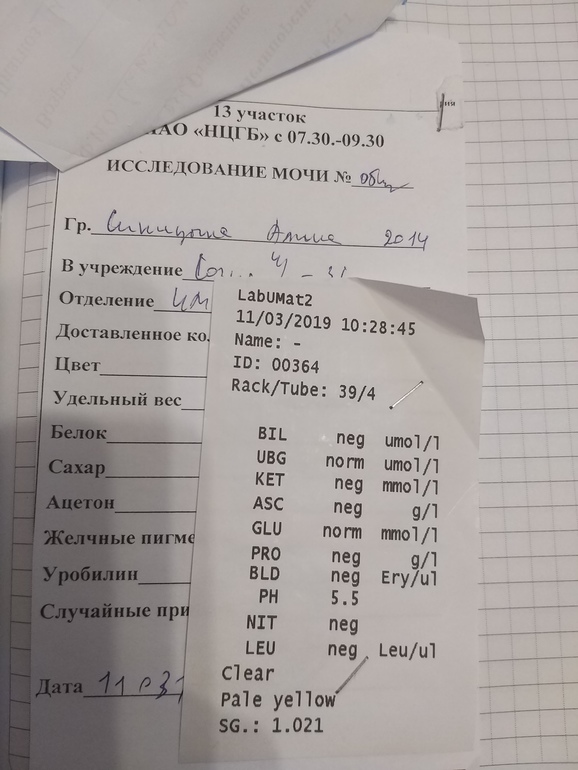 13 участок
НАО «НЦГБ» с 07.30.-09.30
ИССЛЕДОВАНИЕ МОЧИ № общ
Гр. Синицына 2014
В учреждение
Отделение
Доставленное ко
Цвет
Удельный вес
Белок
Сахар
Ацетон
Желчные пигме
Уробилин
Случайные при
Дата 11 03
LabUMat2
11/03/2019 10:28:45
Name: -
ID: 00364
Rack/Tube: 39/4
BIL neg umol/l
UBG norm umol/l
KET neg mmol/l
ASC neg g/l
GLU norm mmol/l
PRO neg g/l
BLD neg Ery/ul
PH 5.5
NIT neg
LEU neg Leu/ul
Clear
Pale yellow
SG.: 1.021